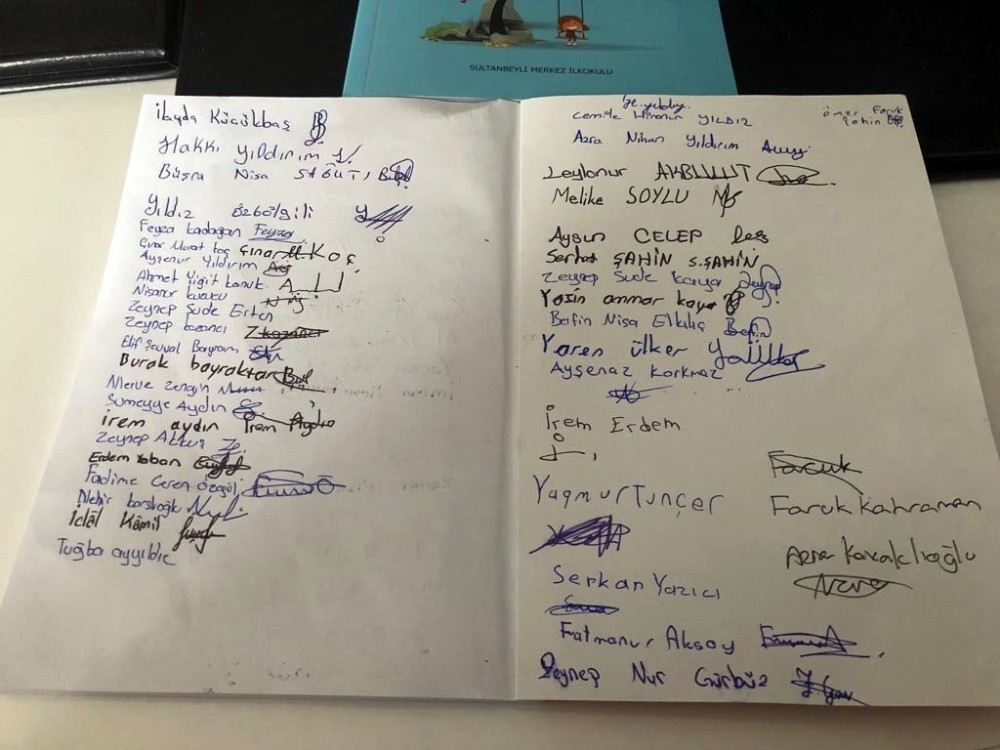 SULTANBEYLİ MERKEZ İLKOKULU
ilayda Küçükbaş
Hakkı yıldırım
Büşra Nisa SABUTİ
Yıldız özbölgili
Feyza badağan Feyza
Çınar Murat koç Çınar M. Koç
Ayşenur Yıldırım
Ahmet Yiğit konuk
Nisanur kuzucu
Zeynep Sude Erten
Zeynep kazancı Z kazancı
Elif Şevval Bayram
Burak bayraktar
Merve zengin
Sümeyye Aydın
irem aydın İrem Aydın
Zeynep Akkuş
Erdem Yaban
Fadime Ceren Özgül
Nehir karslıoğlu
İclâl Kâmil
Tuğba ayyıldız
Cemile Hironur YILDIZ
ömer Faruk
şahin
Azra Nihan Yıldırım
Leylanur AKBULUT
Melike SOYLU MS
Aysun CELEP
Serhat ŞAHİN S.ŞAHİN
Zeynep Sude kaya Zeynep
Yasin ammar kaya
Befin Nisa Elkılıç Befin
Yaren ülker
Ayşenaz korkmaz
İrem Erdem
Faruk
Yağmur Tunçer
Faruk Kahraman
Azra Kavaklıoğlu
Azra
Serkan Yazıcı
Fatmanur Aksoy
Zeynep Nur Gürbüz